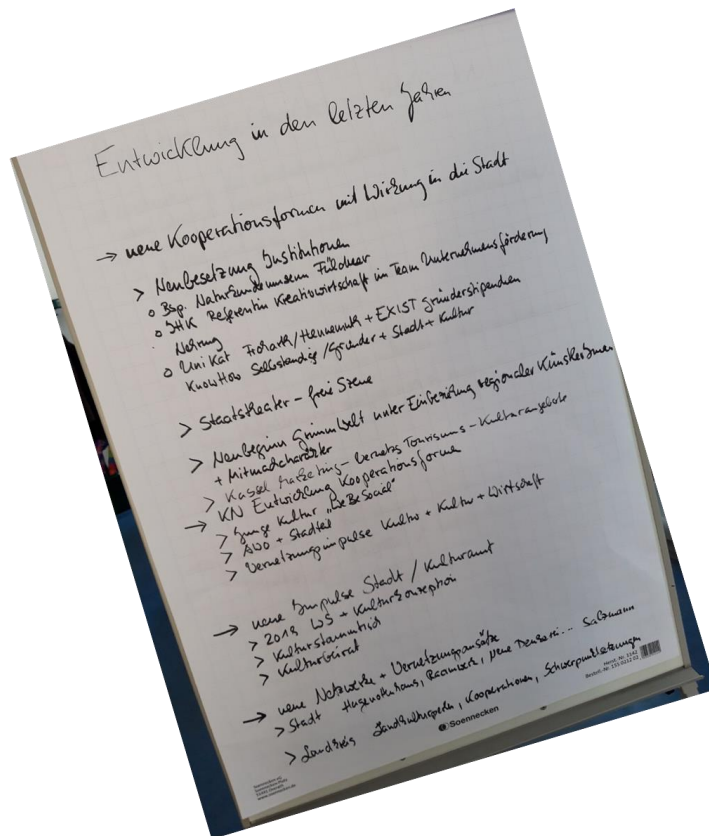 Entwicklung in den letzten Jahren
→ neue Kooperationsformen mit Wirkung in die Stadt
> Neubesetzung Institutionen
o Bsp. Naturkundemuseum Füldner
o IHK Referentin Kreativwirtschaft im Team Unternehmensförderung
Nehrung
o UniKat + EXIST Gründerstipendien
KnowHow Selbständige/Gründer + Stadt + Kultur
> Staatstheater – freie Szene
> Neubeginn Grimmwelt unter Einbeziehung regionaler KünstlerInnen
+ Mitmachcharakter
> Kassel Marketing – Tourismus – Kulturangebote
→ KN Entwicklung Kooperationsforme
> Junge Kultur „WeBeSocial"
> AWO + Stadtteil
> Vernetzungsimpulse Kultur + Kultur + Wirtschaft
→ neue Impulse Stadt / Kulturamt
> 2018 WS + Kulturkonzeption
> Kulturstammtisch
> Kulturbeirat
→ neue Netzwerke + Vernetzungsansätze
> Stadt Hugenottenhaus, Raamwerk, Neue Denkerei... Salzmann
> Landkreis Kooperationen, Schwerpunktsetzungen
Soennecken
Bestell.-Nr. 1142